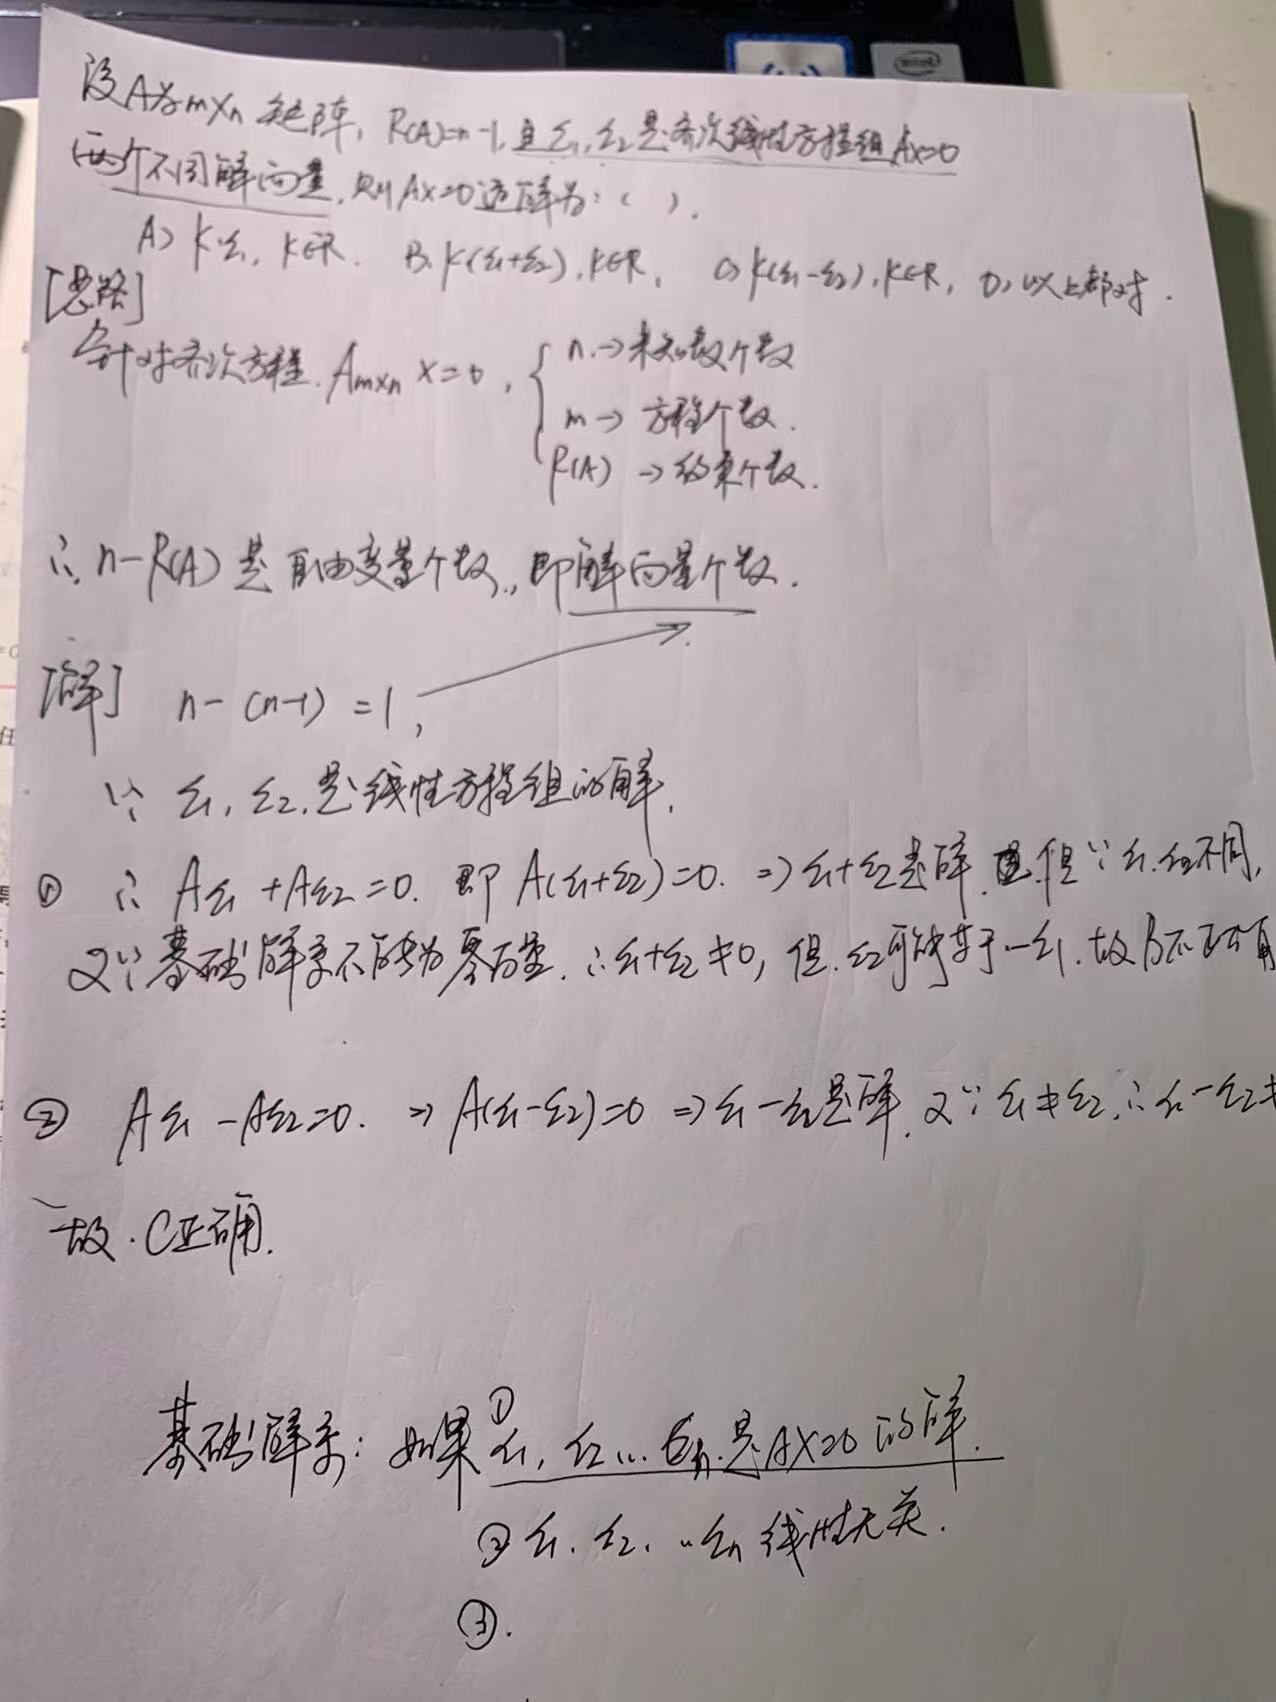 intel
设A为m×n矩阵, R(A)=n-1, 且ξ1, ξ2是齐次线性方程组Ax=0
两个不同解向量, 则AX=0通解为:( ).
A) kξ1, k∈R. B. k(ξ1+ξ2), k∈R, C) k(ξ1-ξ2), k∈R, D, 以上都对.
[思路]
针对齐次方程. Am×n X=0, { n.→未知数个数
m→ 方程个数.
R(A) → 约束个数.
∴ n-R(A)是自由变量个数, 即解向量个数.
[解] n-(n-1)=1,
∵ ξ1, ξ2, 是线性方程组的解,
① ∴ Aξ1+Aξ2=0. 即 A(ξ1+ξ2)=0. ⇒ ξ1+ξ2是解, 但∵ξ1, ξ2不同,
又∵基础解系不能为零向量, ∴ξ1+ξ2≠0, 但, ξ2可能等于-ξ1. 故B不正确
② Aξ1-Aξ2=0. ⇒ A(ξ1-ξ2)=0 ⇒ ξ1-ξ2是解, 又∵ξ1≠ξ2, ∴ξ1-ξ2≠
故. C正确.
基础解系: 如果 ① ξ1, ξ2, ... ξn. 是AX=0的解.
② ξ1, ξ2, ... ξn 线性无关.
③.